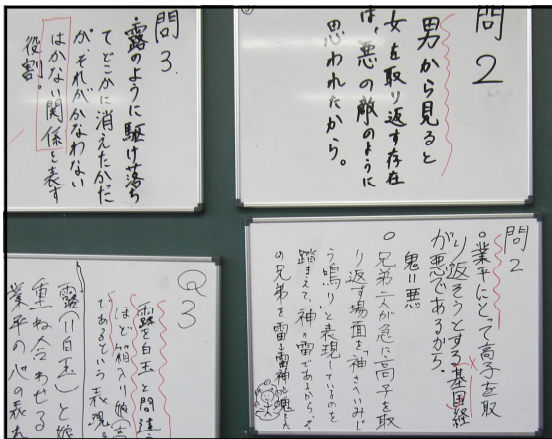 問2
男から見ると
女を取り返す存在
は、悪の敵のように
思われたから。
問3.
露のように駆け落ち
てどこかに消えたかった
が、それがかなわない
はかない関係を表す
役割。
問2
○業平にとって高子を取
り返そうとする基国経
が悪であるから。
鬼=悪
○兄弟二人が急に高子を取
り返す場面を「神さへいみじ
う鳴り」と表現しているのを
踏まえて、神=雷であるから、
の兄弟を雷=雷神
Q3
露を白玉と間違
ほど箱入り娘(高
であるという表現。
露(=白玉)と娘
重ね合わせる
業平の心の表